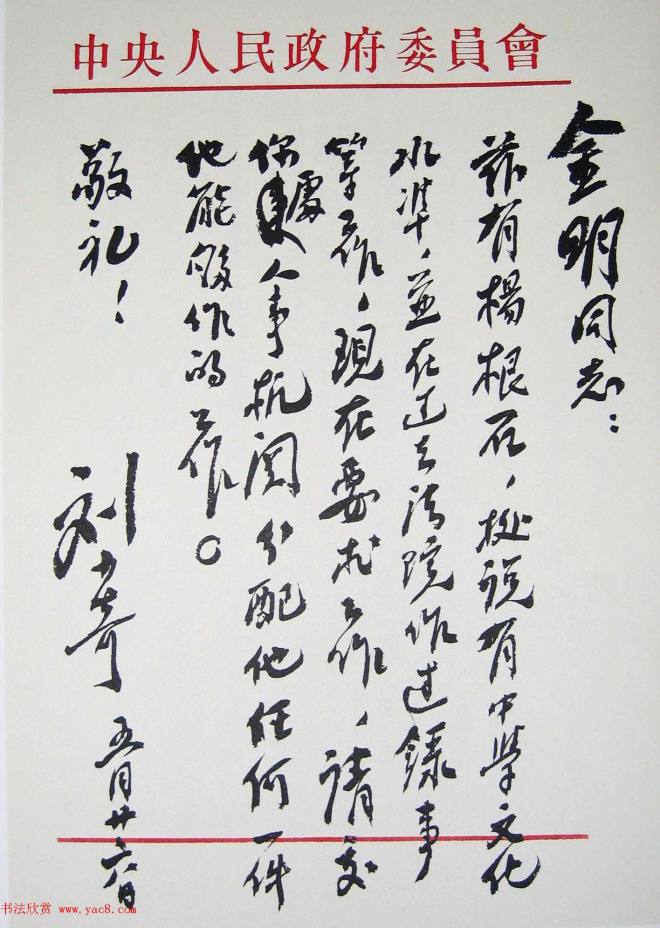 中央人民政府委員會
金明同志：
茲有楊根石，据说有中學文化
水準，並在过去法院作过錄事
等工作，現在要求工作，請交
你處人事机関分配他任何一件
他能够作的工作。
敬礼！
刘少奇 五月廿六日
书法欣赏 www.yac8.com